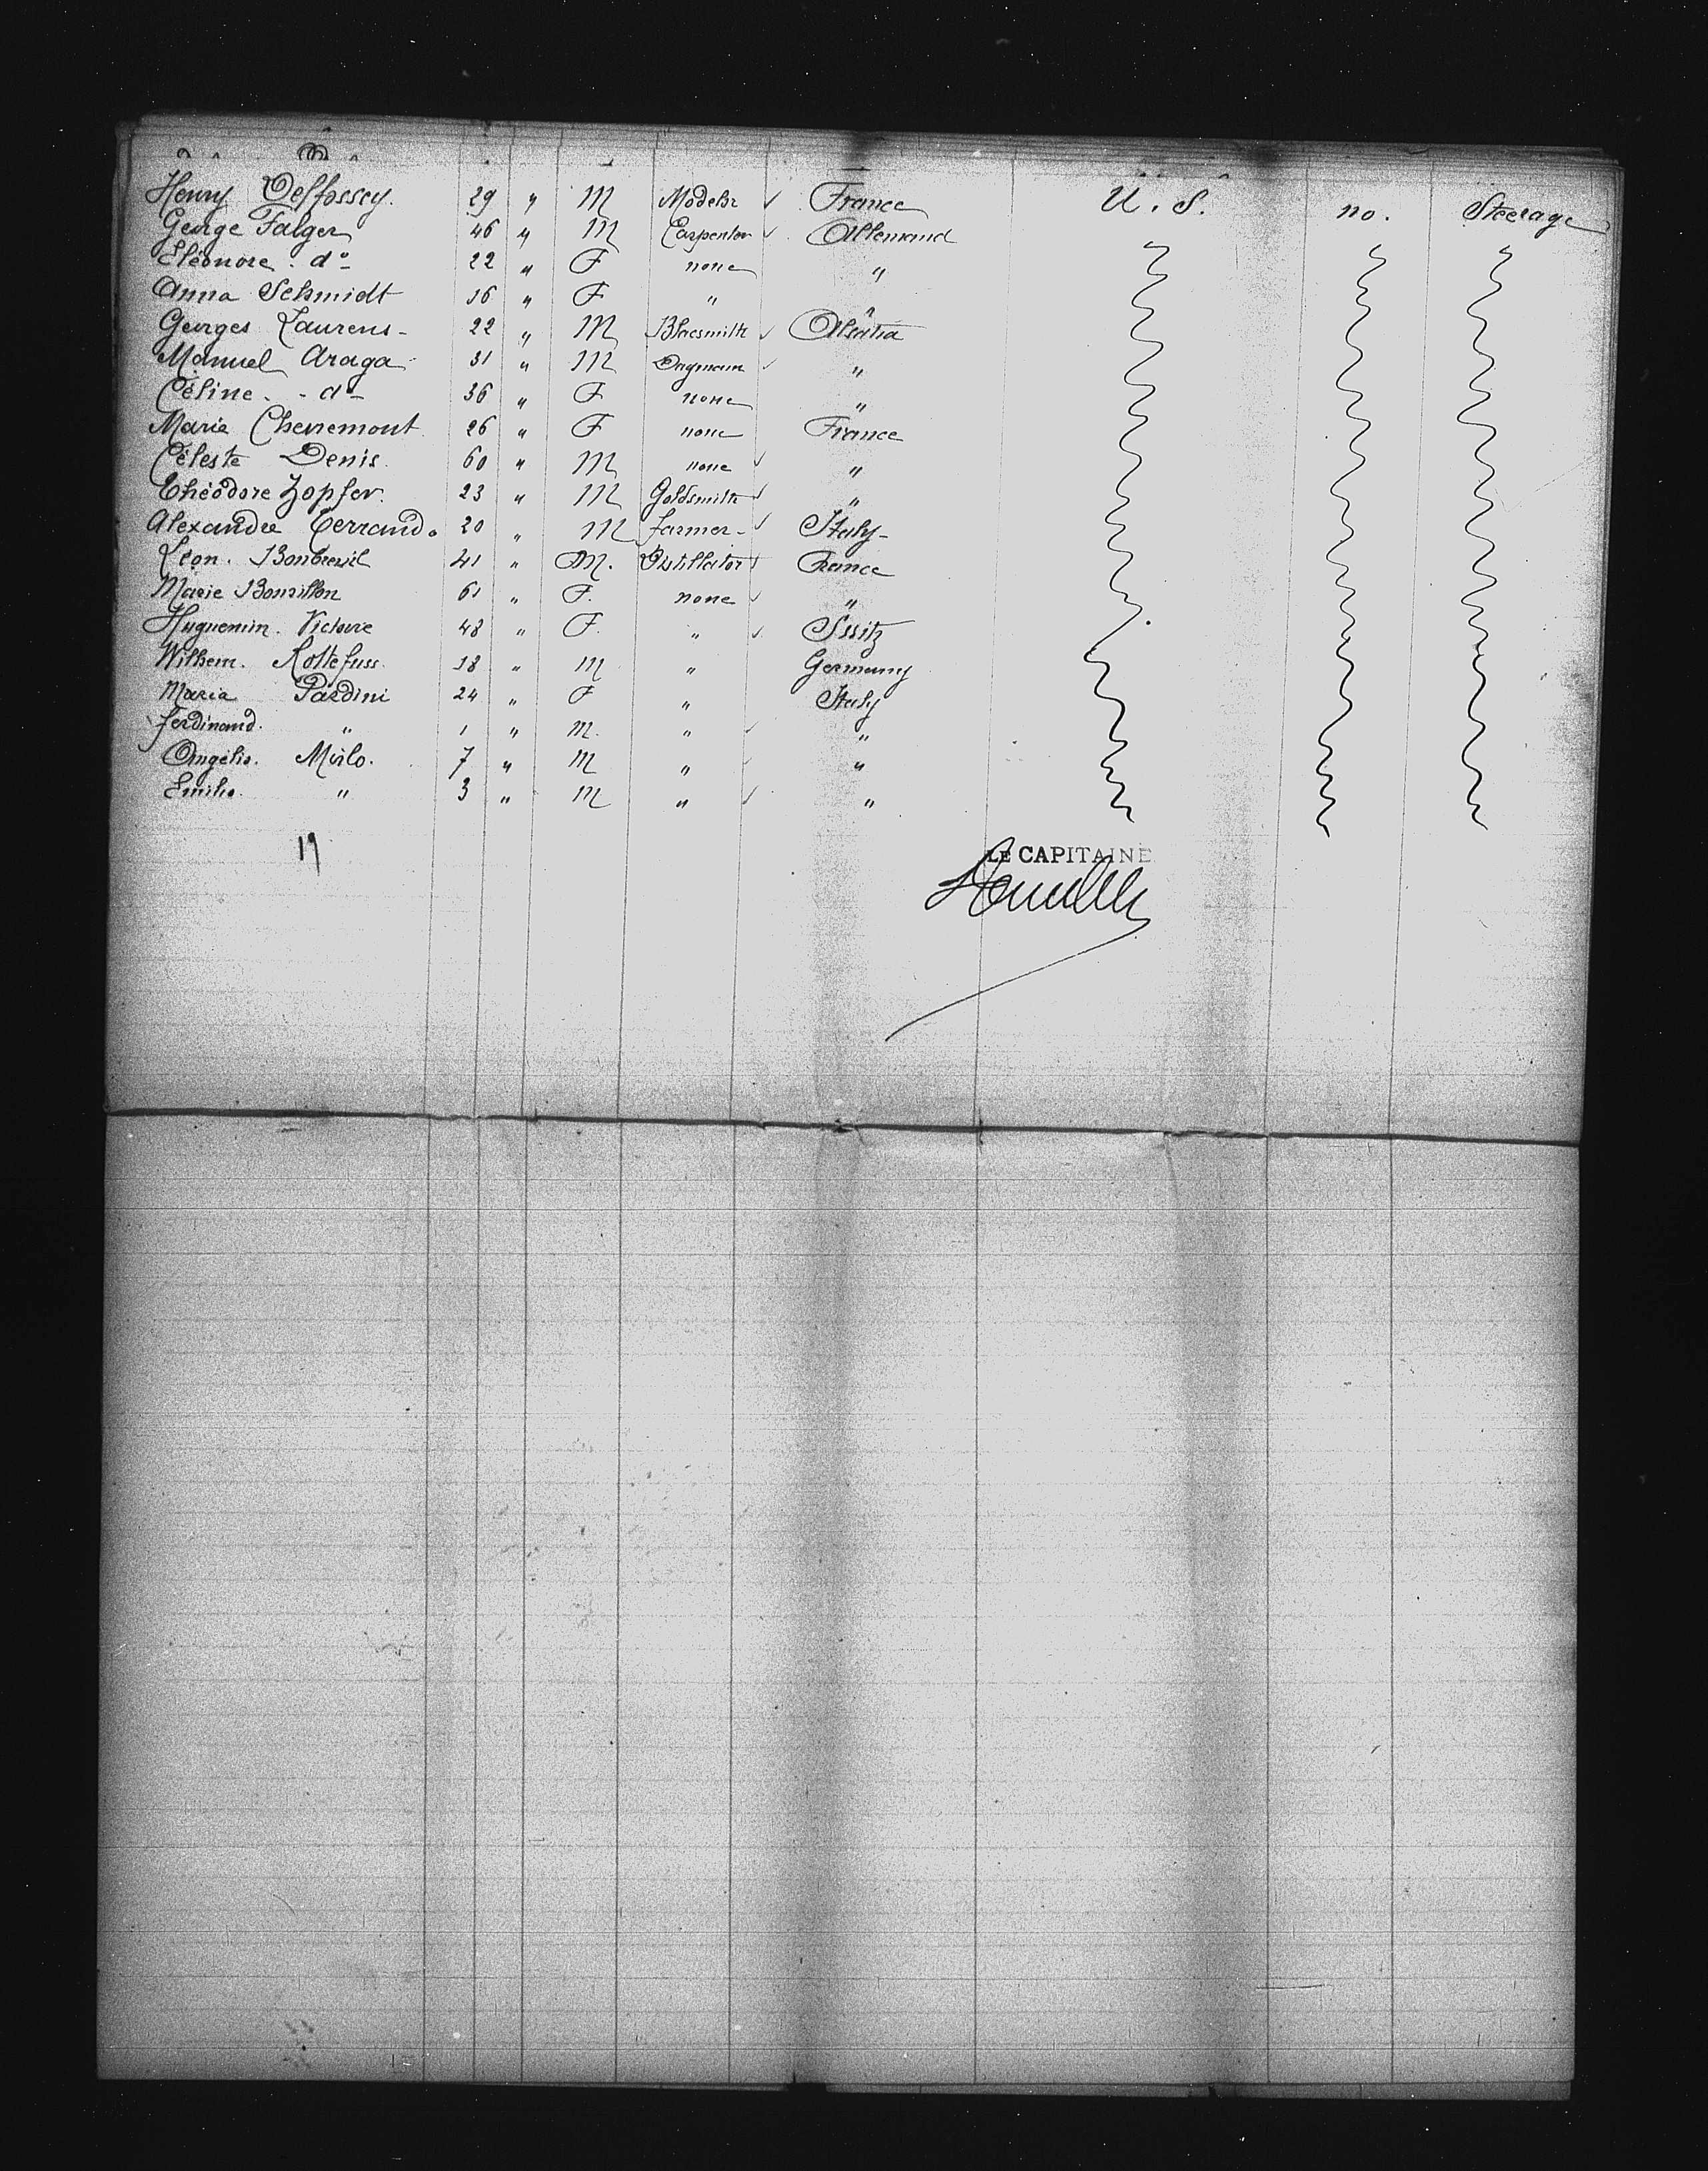 Henry Delfossey. 29 " M Modeler ✓ France U. S. no. Steerage
George Falger 46 " M Carpenter ✓ Allemand
Eléonore. do 22 " F none "
Anna Schmidt 16 " F " "
Georges Laurens - 22 " M Blacsmith ✓ Alsatia
Manuel Araga 31 " M ✓ "
Céline. - do 36 " F none "
Marie Chenemont 26 " F none France
Céleste Denis. 60 " M none ✓ "
Théodore Zopfer. 23 " M Goldsmith ✓ "
Alexandre Cerrando 20 " M farmer - ✓ Italy -
Léon. Bonbreuil 41 " M. Distillator ✓ France
Marie Bouillon 61 " F. none ✓ "
Huguenin. Victoire 48 " F. " ✓
Wilhem. Rottefuss. 18 " M " Germany
Maria Pardini 24 " F " Italy
Ferdinand. " 1 " M. " ✓ "
Angelis. Mirlo. 7 " M " ✓ "
Emilio. " 3 " M " ✓ "
19
LE CAPITAINE